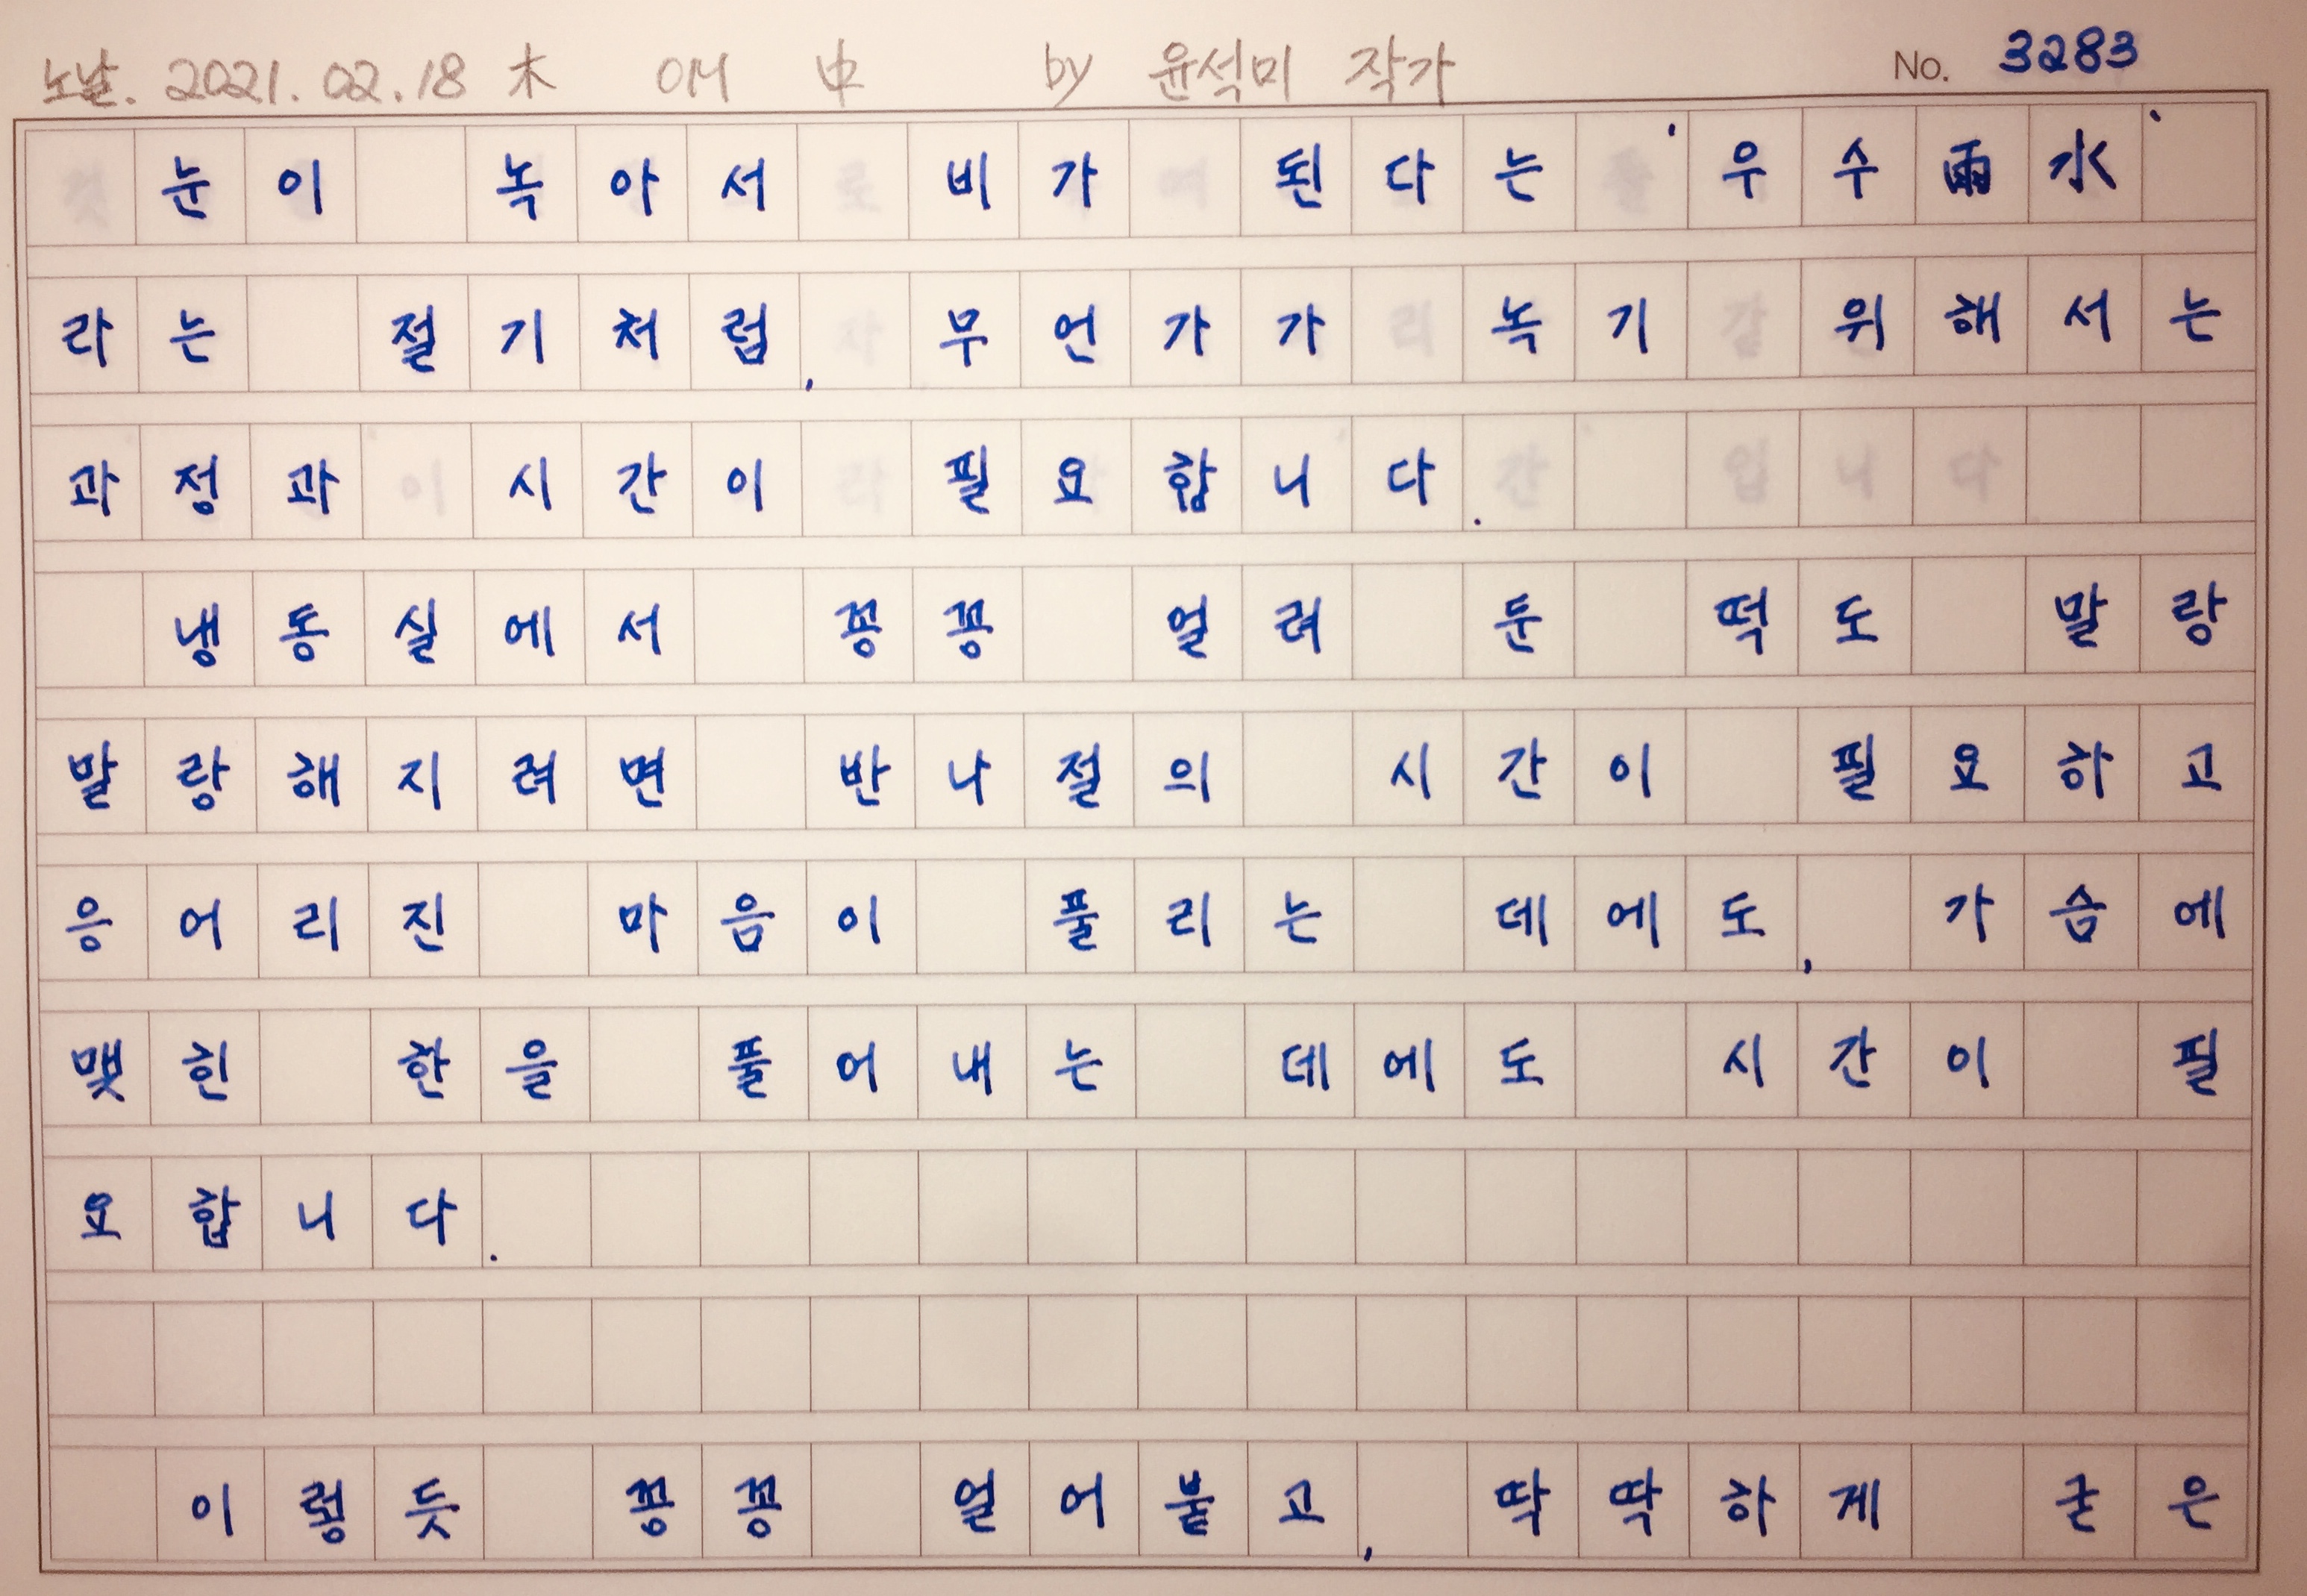 노날. 2021.02.18 木 OM 中 by 윤석미 작가 No. 3283
눈이 녹아서 비가 된다는 '우수雨水'
라는 절기처럼, 무언가가 녹기 위해서는
과정과 시간이 필요합니다.
냉동실에서 꽁꽁 얼려 둔 떡도 말랑
말랑해지려면 반나절의 시간이 필요하고
응어리진 마음이 풀리는 데에도, 가슴에
맺힌 한을 풀어내는 데에도 시간이 필
요합니다.
이렇듯 꽁꽁 얼어붙고, 딱딱하게 굳은